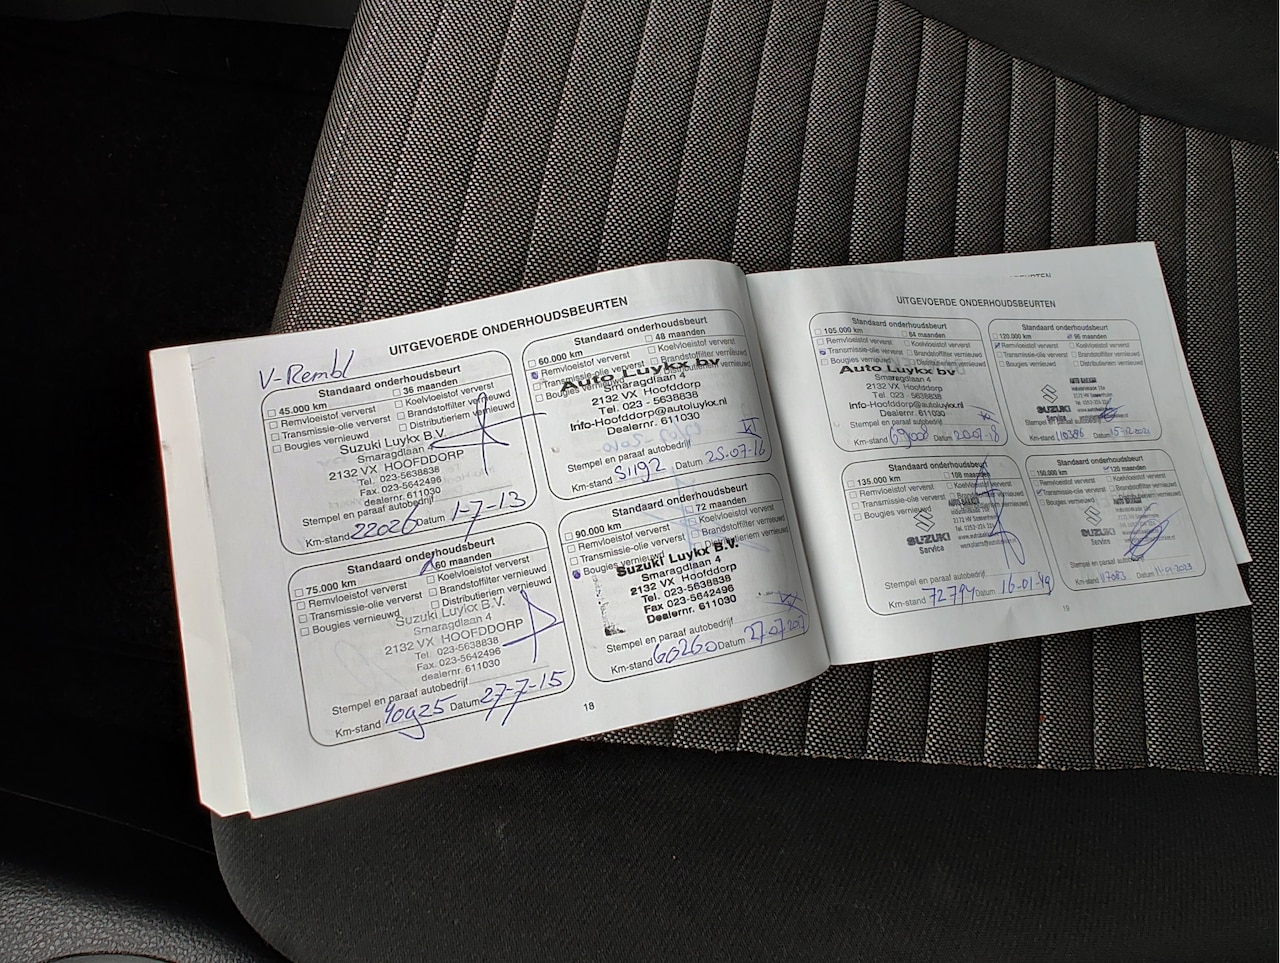 UITGEVOERDE ONDERHOUDSBEURTEN
V-Rembl
Standaard onderhoudsbeurt
45.000 km
36 maanden
Remvloeistof ververst
Koelvloeistof ververst
Transmissie-olie ververst
Brandstoffilter vernieuwd
Bougies vernieuwd
Distributieriem vernieuwd
Suzuki Luykx B.V.
Smaragdlaan 4
2132 VX HOOFDDORP
Tel. 023-5638838
Fax. 023-5642496
dealernr. 611030
Stempel en paraaf autobedrijf
Km-stand 22026 Datum 1-7-13
Standaard onderhoudsbeurt
60.000 km
48 maanden
Remvloeistof ververst
Koelvloeistof ververst
Transmissie-olie ververst
Brandstoffilter vernieuwd
Bougies vernieuwd
Auto Luykx bv
Smaragdlaan 4
2132 VX Hoofddorp
Tel. 023 - 5638838
Info-Hoofddorp@autoluykx.nl
Dealernr. 611030
Stempel en paraaf autobedrijf
Km-stand 51192 Datum 25-07-16
Standaard onderhoudsbeurt
75.000 km
60 maanden
Remvloeistof ververst
Koelvloeistof ververst
Transmissie-olie ververst
Brandstoffilter vernieuwd
Bougies vernieuwd
Distributieriem vernieuwd
Suzuki Luykx B.V.
Smaragdlaan 4
2132 VX HOOFDDORP
Tel. 023-5638838
Fax. 023-5642496
dealernr. 611030
Stempel en paraaf autobedrijf
Km-stand 40925 Datum 27-7-15
Standaard onderhoudsbeurt
90.000 km
72 maanden
Remvloeistof ververst
Koelvloeistof ververst
Transmissie-olie ververst
Brandstoffilter vernieuwd
Bougies vernieuwd
Distributieriem vernieuwd
Suzuki Luykx B.V.
Smaragdlaan 4
2132 VX Hoofddorp
Tel. 023-5638838
Fax 023-5642496
Dealernr. 611030
Stempel en paraaf autobedrijf
Km-stand 60260 Datum 27-07-2017
18
UITGEVOERDE ONDERHOUDSBEURTEN
Standaard onderhoudsbeurt
105.000 km
84 maanden
Remvloeistof ververst
Koelvloeistof ververst
Transmissie-olie ververst
Brandstoffilter vernieuwd
Bougies vernieuwd
Auto Luykx bv
Smaragdlaan 4
2132 VX Hoofddorp
Tel. 023 - 5638838
Info-Hoofddorp@autoluykx.nl
Dealernr. 611030
Stempel en paraaf autobedrijf
Km-stand 69008 Datum 20-07-18
Standaard onderhoudsbeurt
120.000 km
96 maanden
Remvloeistof ververst
Koelvloeistof ververst
Transmissie-olie ververst
Brandstoffilter vernieuwd
Bougies vernieuwd
SUZUKI
Service
Stempel en paraaf autobedrijf
Km-stand 110386 Datum 15-12-2021
Standaard onderhoudsbeurt
135.000 km
108 maanden
Remvloeistof ververst
Koelvloeistof ververst
Transmissie-olie ververst
Brandstoffilter vernieuwd
Bougies vernieuwd
SUZUKI
Service
Stempel en paraaf autobedrijf
Km-stand 72794 Datum 16-01-19
Standaard onderhoudsbeurt
150.000 km
120 maanden
Remvloeistof ververst
Koelvloeistof ververst
Transmissie-olie ververst
Brandstoffilter vernieuwd
Bougies vernieuwd
SUZUKI
Service
Stempel en paraaf autobedrijf
Km-stand Datum
19